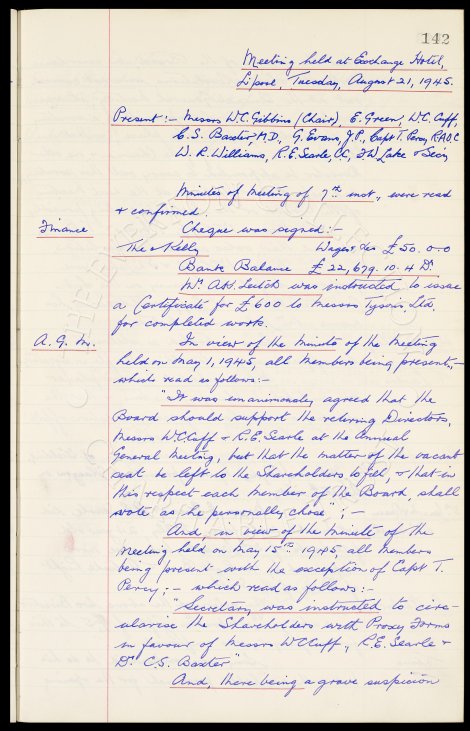 142
Meeting held at Exchange Hotel,
L'pool, Tuesday, August 21, 1945.
Present:- Messrs W.C. Gibbins (Chair), E. Green, W.C. Cuff,
C.S. Baxter, M.D., G. Evans, J.P., Capt T. Percy, R.A.O.C
W.R. Williams, R.E. Searle, CC, F.W. Lake & Secy
Minutes of Meeting of 7th inst, were read
& confirmed.
Finance
Cheque was signed:-
The Kelly Wages &c £50.0.0
Bank Balance £22,679.10.4 Dr
Mr. A.H. Leitch was instructed to issue
a Certificate for £600 to Messrs Tysons Ltd.
for completed work.
A.G.M.
In view of the Minute of the Meeting
held on May 1, 1945, all Members being present,-
which read as follows:-
"It was unanimously agreed that the
Board should support the retiring Directors,
Messrs W.C. Cuff & R.E. Searle at the Annual
General Meeting, but that the matter of the vacant
seat be left to the Shareholders to fill, & that in
this respect each Member of the Board, shall
vote as he personally chose";-
And, in view of the Minute of the
Meeting held on May 15th 1945, all members
being present with the exception of Capt T.
Percy:- which read as follows:-
"Secretary was instructed to circ-
ularise the Shareholders with Proxy Forms
in favour of Messrs W.C. Cuff, R.E. Searle &
Dr. C.S. Baxter"
And, there being a grave suspicion